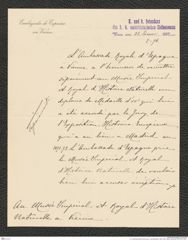 Embajada de España
en Viena
K. und k. Intendanz
des k. k. naturhistorischen Hofmuseums
Wien am
L'Ambassade Royal d'Espagne
à Vienne a l'honneur de remettre
au Musée Impérial
et Royal d'Histoire Naturelle un
diplome de Médaille d'or qui leur
a été accordé par le Jury de
l'Exposition Historique
qui a eu lieu à Madrid en
L'Ambassade d'Espagne prie
le Musée Impérial et Royal
d'Histoire Naturelle de vouloir
bien leur accuser réception
Au Musée Impérial et Royal d'Histoire
Naturelle à Vienne